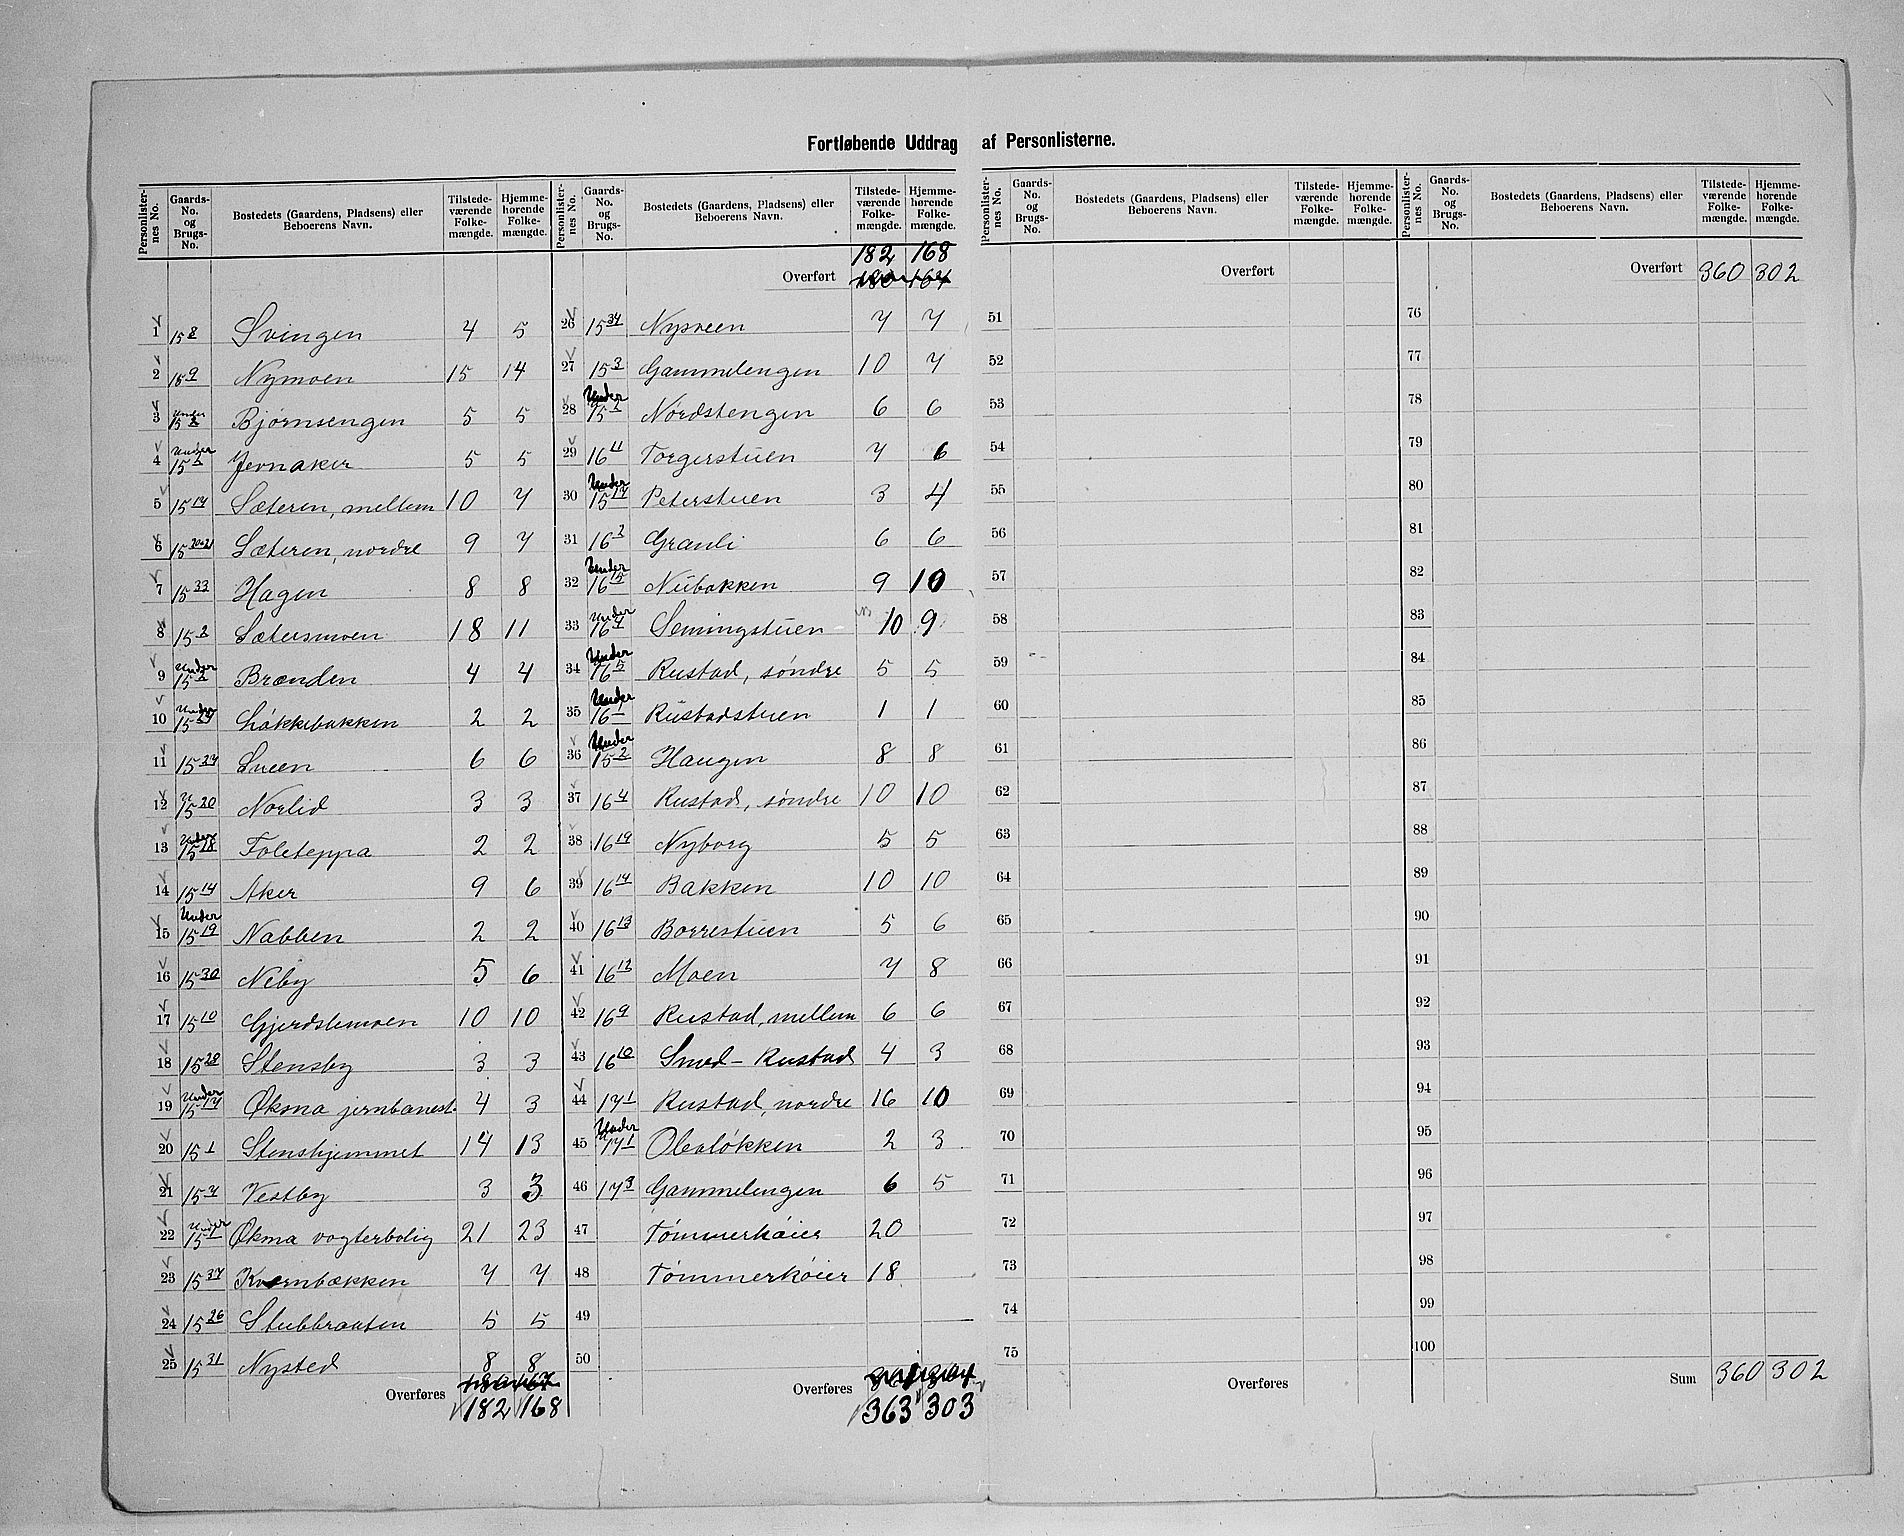 Fortløbende Uddrag af Personlisterne.
Personlister-nes No. | Gaards-No. og Brugs-No. | Bostedets (Gaardens, Pladsens) eller Beboerens Navn. | Tilstede-værende Folke-mængde. | Hjemme-hørende Folke-mængde.
1 15 8 Svingen 4 5
2 15 9 Nymoen 15 14
3 Under 15 2 Bjørnsengen 5 5
4 Under 15 2 Jernaker 5 5
5 15 17 Sæteren, mellem 10 7
6 15 20-21 Sæteren, nordre 9 7
7 15 33 Hagen 8 8
8 15 2 Sætersmoen 18 11
9 Under 15 2 Brænden 4 4
10 Under 15 Løkkebakken 2 2
11 15 27 Sveen 6 6
12 15 20 Norlid 3 3
13 Under 15 18 Foleteppa 2 2
14 15 14 Aker 9 6
15 Under 15 19 Nabben 2 2
16 15 30 Neby 5 6
17 15 10 Gjerdstemoen 10 10
18 15 28 Stensby 3 3
19 Under 15 17 Økma jernbanest. 4 3
20 15 1 Stenshjemmet 14 13
21 15 7 Vestby 3 3
22 Under 15 1 Økma vogterbolig 21 23
23 15 37 Kvernbækken 7 7
24 15 26 Stubbraaten 5 5
25 15 31 Nysted 8 8
Overføres
182 168
Personlister-nes No. | Gaards-No. og Brugs-No. | Bostedets (Gaardens, Pladsens) eller Beboerens Navn. | Tilstede-værende Folke-mængde. | Hjemme-hørende Folke-mængde.
182 168
Overført 180 164
26 15 34 Nysveen 7 7
27 15 3 Gammelengen 10 7
28 Under 15 2 Nordstengen 6 6
29 16 11 Torgerstuen 7 6
30 Under 15 17 Peterstuen 3 4
31 16 2 Granli 6 6
32 Under 16 15 Nübakken 9 10
33 Under 16 7 Semingstuen 10 9
34 Under 16 5 Rustad, søndre 5 5
35 Under 16 1 Rustadstuen 1 1
36 Under 15 2 Haugen 8 8
37 16 4 Rustad, søndre 10 10
38 16 19 Nyborg 5 5
39 16 14 Bakken 10 10
40 16 13 Borrestuen 5 6
41 16 12 Moen 7 8
42 16 9 Rustad, mellem 6 6
43 16 10 Smed-Rustad 4 3
44 17 1 Rustad, nordre 16 10
45 Under 17 1 Olaløkken 2 3
46 17 3 Gammelengen 6 5
47 Tømmerkøier 20
48 Tømmerkøier 18
49
50
Overføres
363 303
Personlister-nes No. | Gaards-No. og Brugs-No. | Bostedets (Gaardens, Pladsens) eller Beboerens Navn. | Tilstede-værende Folke-mængde. | Hjemme-hørende Folke-mængde.
Overført
51
52
53
54
55
56
57
58
59
60
61
62
63
64
65
66
67
68
69
70
71
72
73
74
75
Overføres
Personlister-nes No. | Gaards-No. og Brugs-No. | Bostedets (Gaardens, Pladsens) eller Beboerens Navn. | Tilstede-værende Folke-mængde. | Hjemme-hørende Folke-mængde.
Overført 360 302
76
77
78
79
80
81
82
83
84
85
86
87
88
89
90
91
92
93
94
95
96
97
98
99
100
Sum 360 302